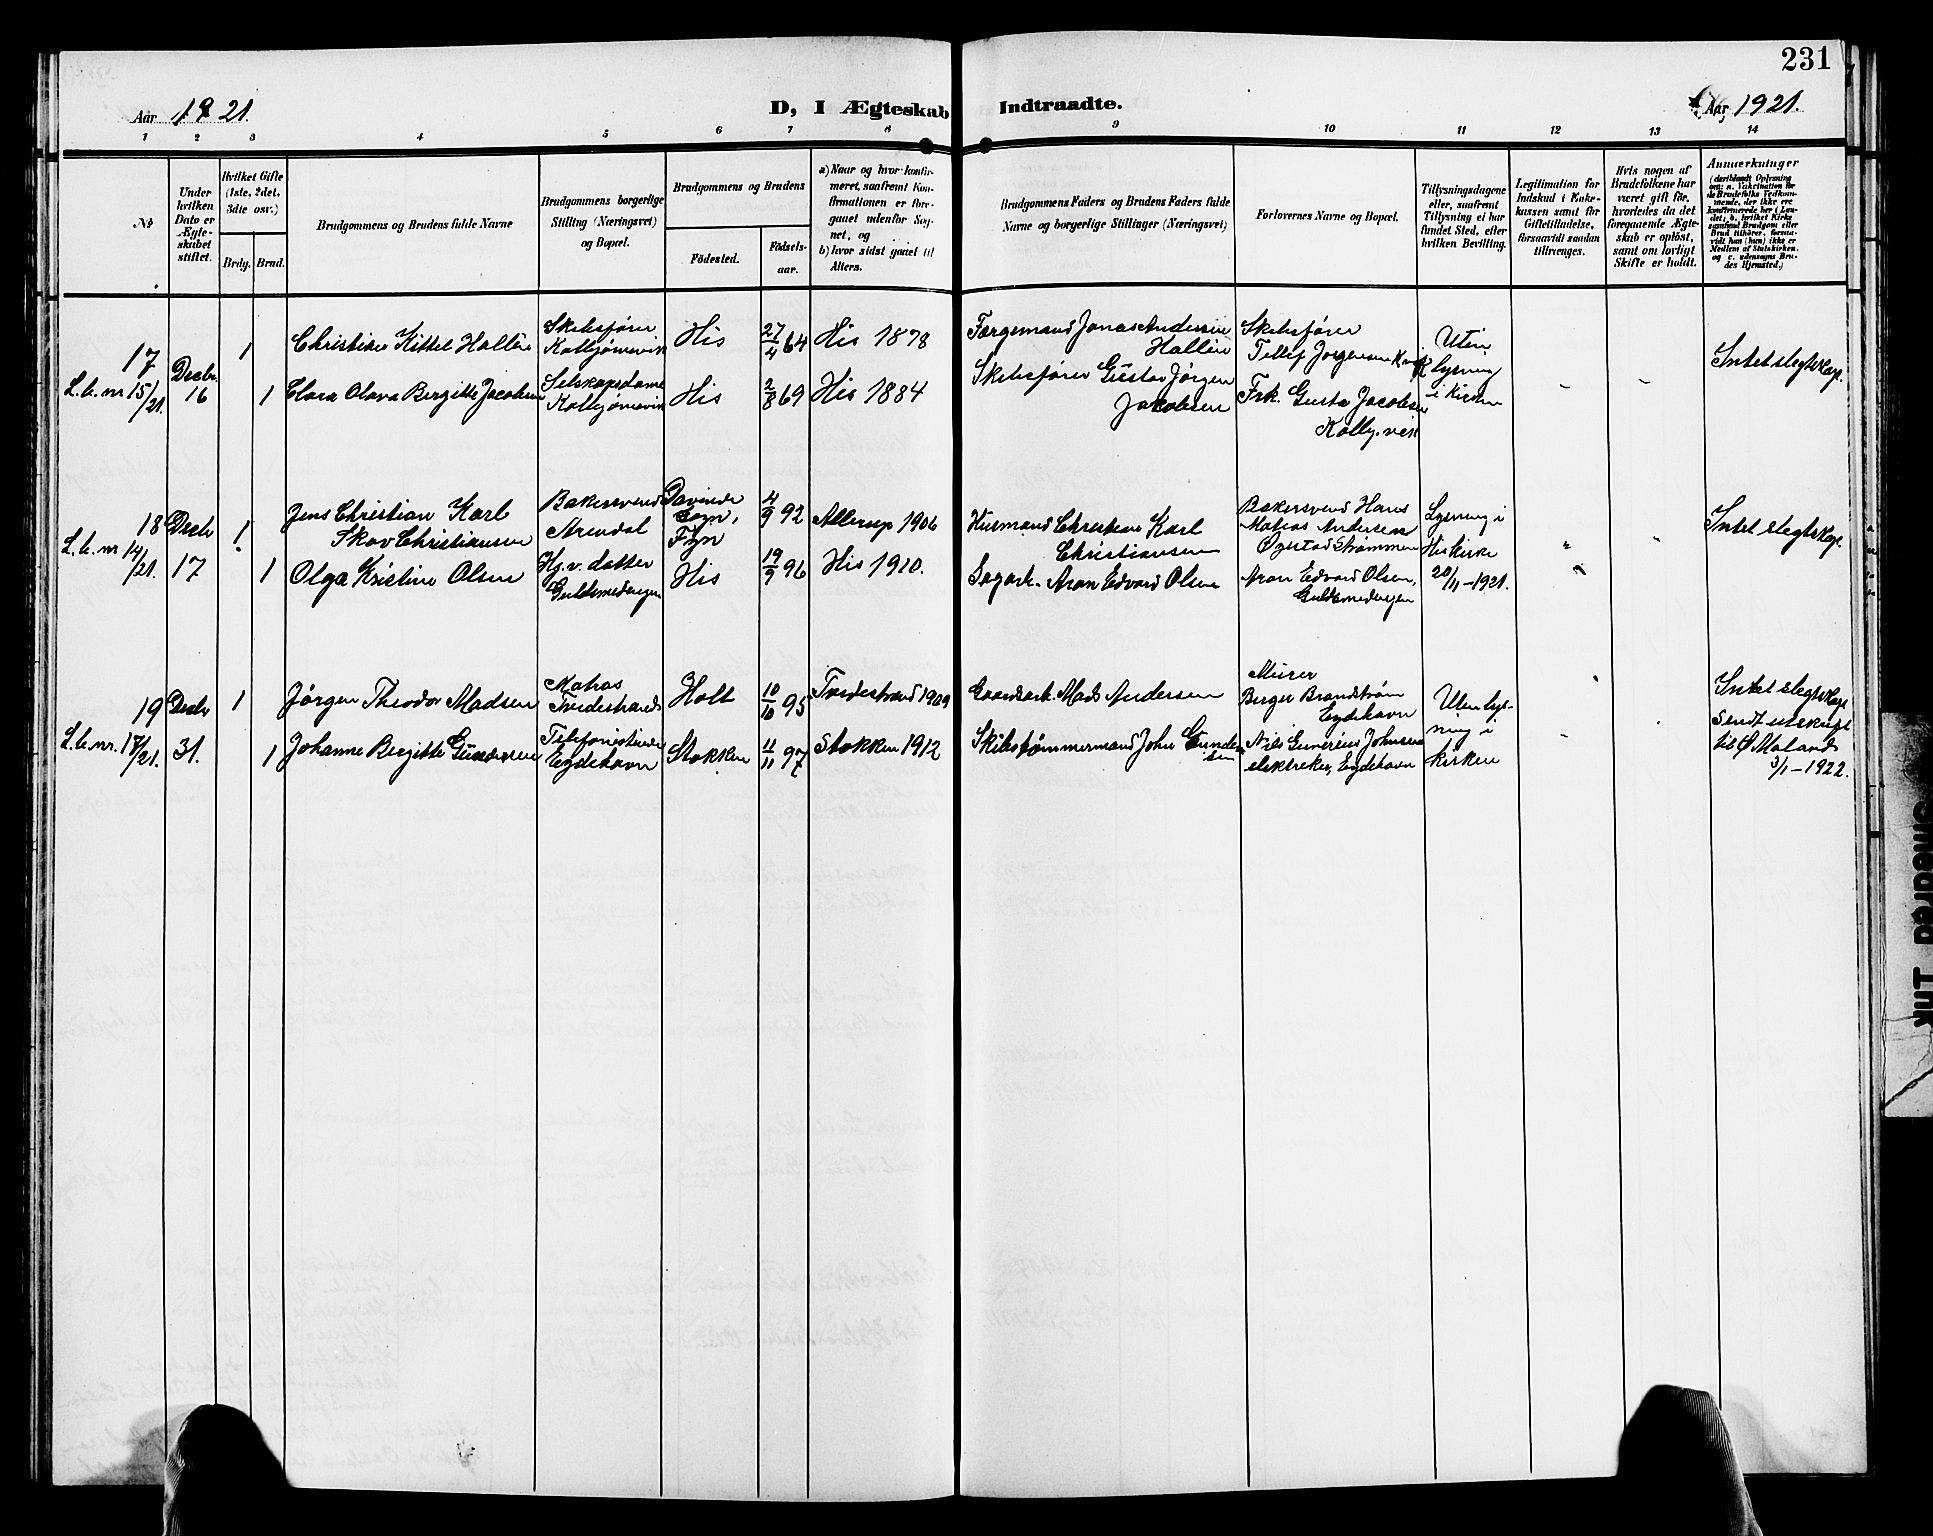 231
Aar 1921.
D, I Ægteskab Indtraadte.
Aar 1921.
1 2 3 4 5 6 7 8 9 10 11 12 13 14
No
Under
hvilken
Dato er
Ægte-
skabet
stiftet.
Hvilket Gifte
(1ste, 2det,
3die osv.)
Brdg. Brud.
Brudgommens og Brudens fulde Navne
Brudgommens borgerlige
Stilling (Næringsvei)
og Bopæl.
Brudgommens og Brudens
Födested.
Födsels-
aar.
a) Naar og hvor konfir-
meret, saafremt Kon-
firmationen er fore-
gaaet udenfor Sog-
net, og
b) hvor sidst gaaet til
Alters.
Brudgommens Faders og Brudens Faders fulde
Navne og borgerlige Stillinger (Næringsvei)
Forlovernes Navne og Bopæl.
Tillysningsdagene
eller, saafremt
Tillysning ei har
fundet Sted, efter
hvilken Bevilling.
Legitimation for
Indskud i Enke-
kassen samt for
Giftetilladelse,
forsaavidt saadan
tiltrænges.
Hvis nogen af
Brudefolkene har
været gift för,
hvorledes da det
foregaaende Ægte-
skab er oplöst,
samt om lovligt
Skifte er holdt.
Anmærkninger
(deriblandt Oplysning
om: a. Vakcination for
de Brudefolks Vedkom-
mende, der ikke ere
konfirmerede her i Lan-
det; b. hvilket Kirke-
samfund Brudgom eller
Brud tilhörer, forsaa-
vidt han (hun) ikke er
Medlem af Statskirken,
og c. udensogns Bru-
des Hjemsted.)
17
L.b. nr 15/21.
Decbr.
16
1
Christian Kittel Hallin
Skibsfører
Kolbjørnsvik
His
27/4 64
His 1878
Færgemand Jonas Andersen
Hallin
Skibsfører
Tellef Jørgensen
Uten
lysning
i kirken
Intet slegtskap.
1
Clara Olava Bergitte Jacobsen
Selskapsdame
Kolbjørnsvik
His
2/8 69
His 1884
Skibsfører Gustav Jørgen
Jakobsen
Frk. Gusta Jacobsen
Kolbj.vik
18
L.b. nr 14/21.
Decbr
17
1
Jens Christian Karl
Skov Christiansen
Bakersvend
Arendal
Davinde
Sogn,
Fyn
4/9 92
Allerup 1906
Husmand Christian Karl
Christiansen
Bakersvend Hans
Matias Andersen
Øyestad Strømmen
Lysning i
His kirke
20/11-1921.
Intet slegtskap.
1
Olga Kristine Olsen
Hj.v. datter
Guldsmedengen
His
19/9 96
His 1910.
Sagarb. Aron Edvard Olsen
Aron Edvard Olsen,
Guldsmedengen
19
L.b. nr. 17/21.
Decbr
31.
1
Jørgen Theodor Madsen
Matros
Tvedestrand
Holt
10/10 95
Tvedestrand 1909
Gaardsarb. Mads Andersen
Murer
Birger Brandstrøm
Eydehavn
Uten lys-
ning i
kirken
Intet slegtskap
Sendt utskrift
til Ø. Moland
3/1-1922.
1
Johanne Bergitte Gundersen
Telefonistinde
Eydehavn
Stokken
11/11 97
Stokken 1912
Skibstømmermand John Gunder-
sen
Nils Johnsen
elektriker, Eydehavn